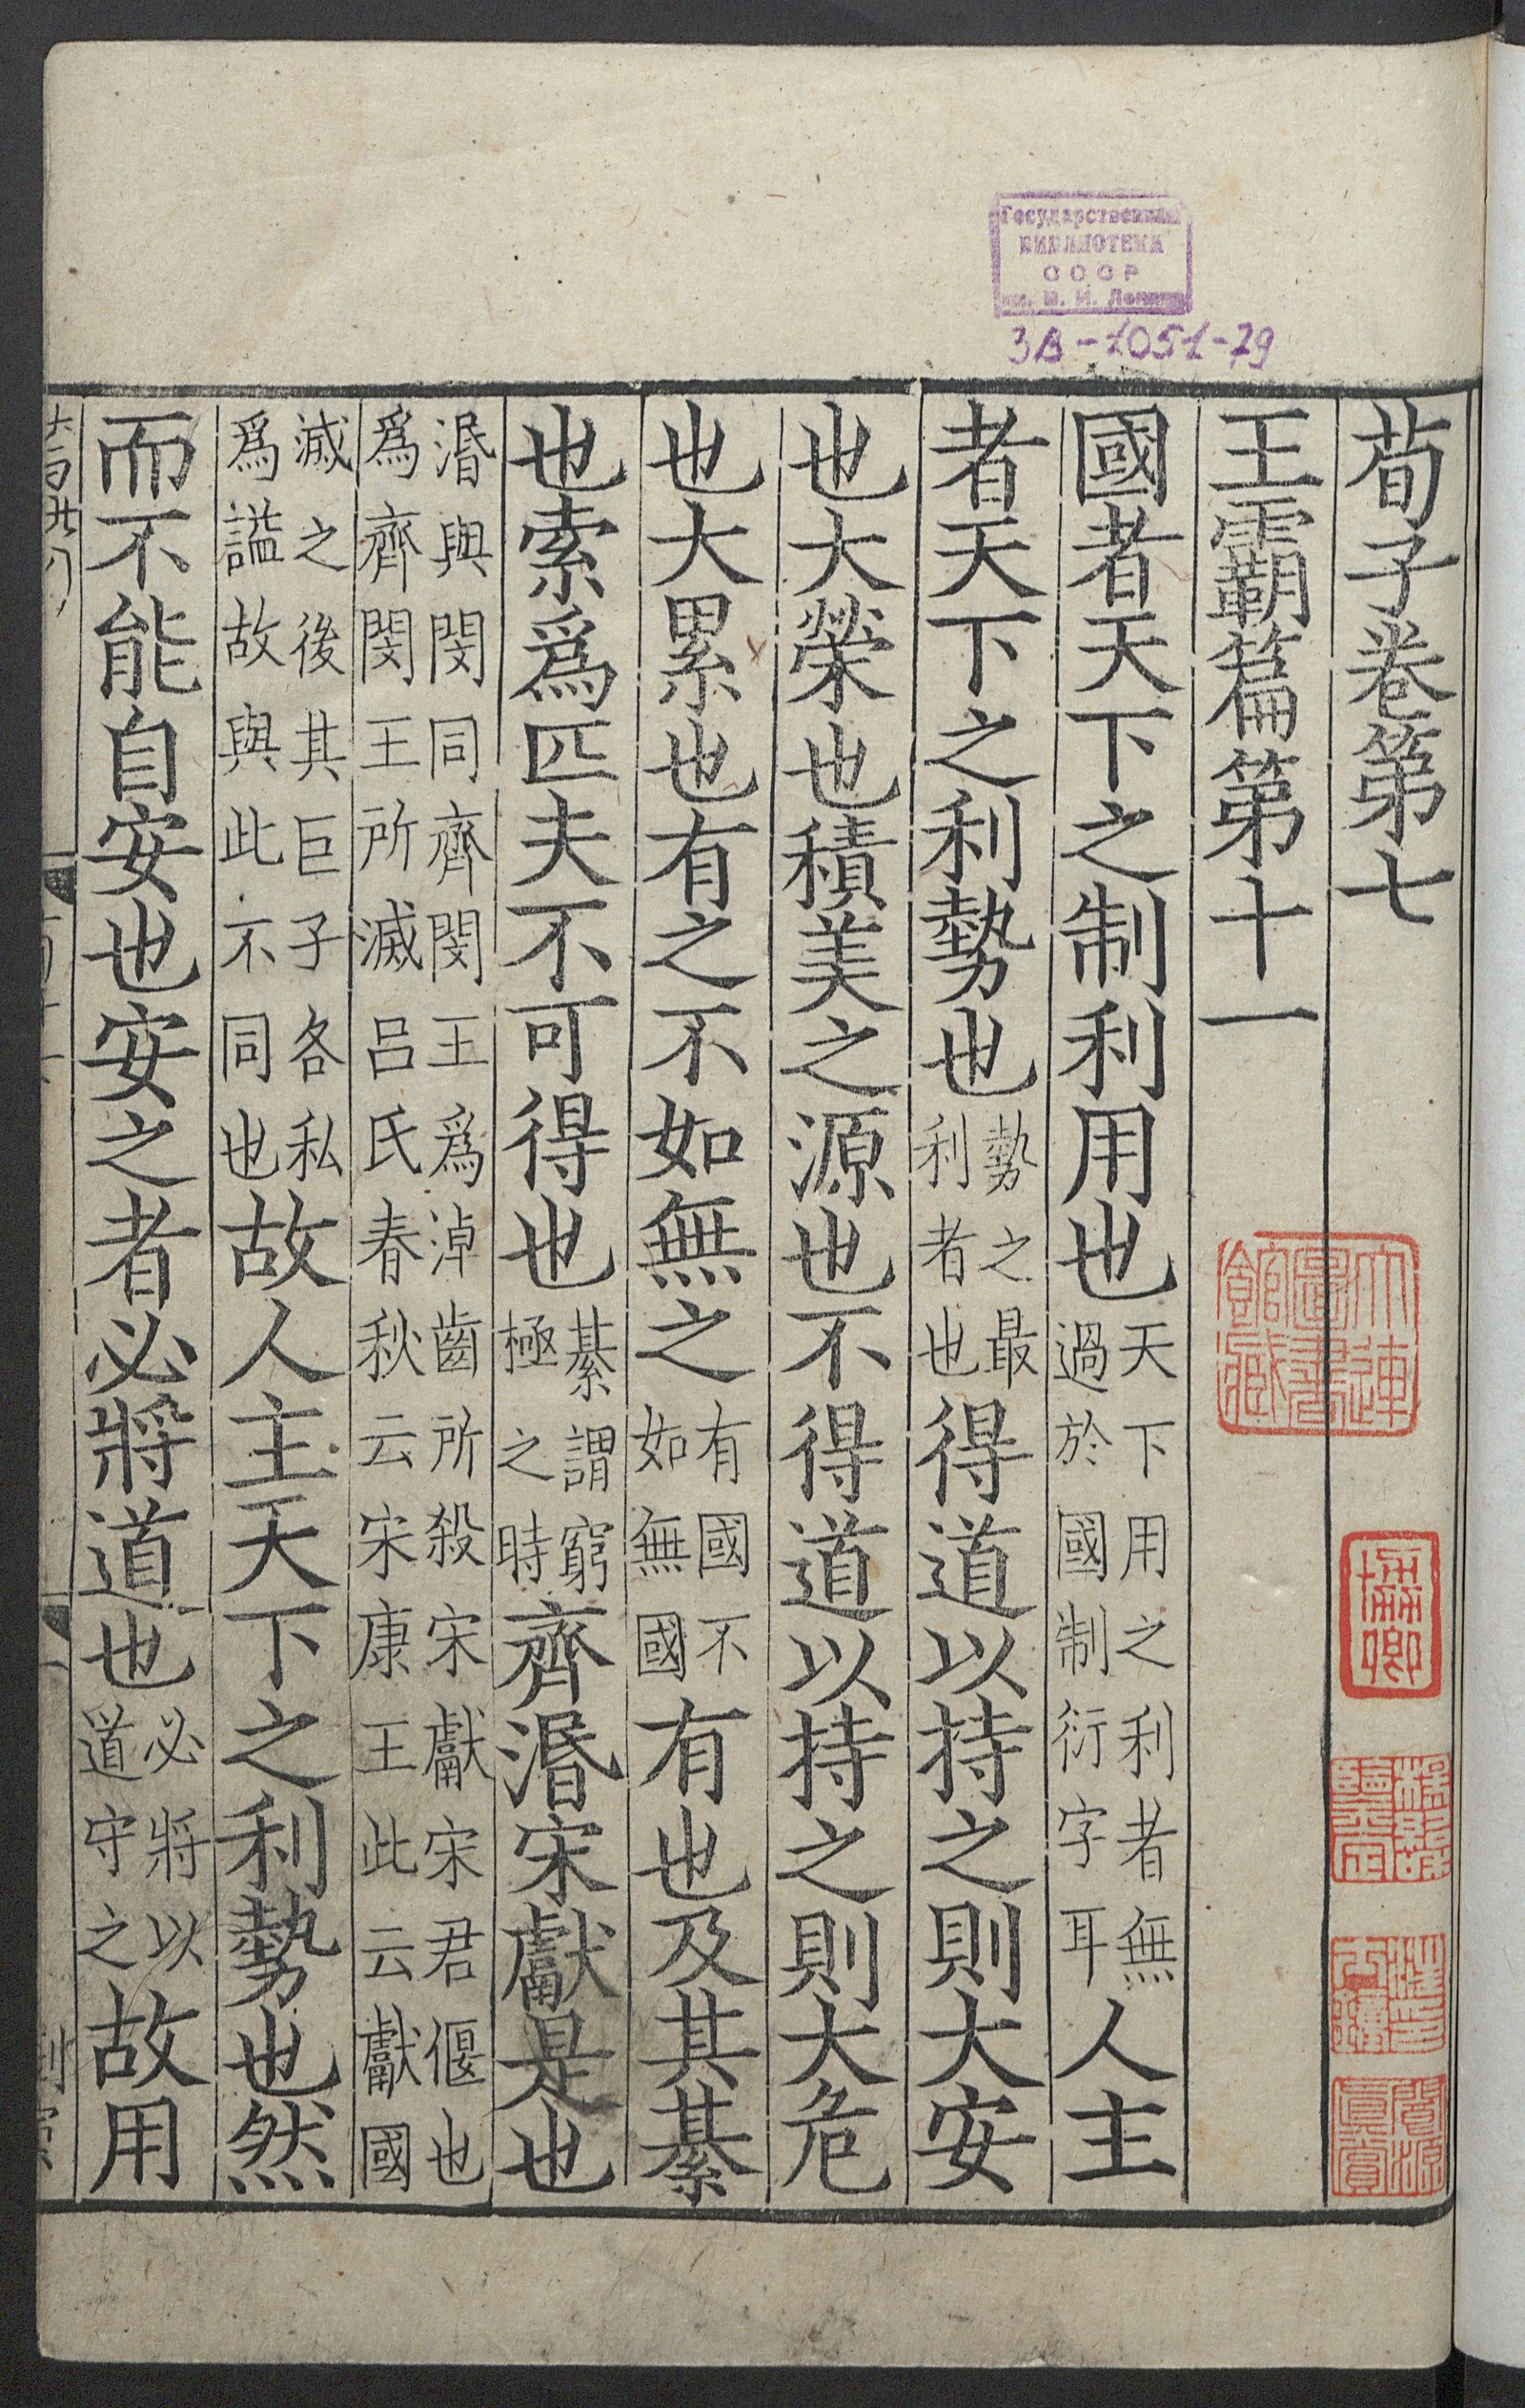 荀子卷第七
王霸篇第十一
國者天下之制利用也天下用之利者無過於國制衍字耳人主
者天下之利勢也勢之最利者也得道以持之則大安
也大榮也積美之源也不得道以持之則大危
也大累也有之不如無之有國不如無國不有也及其綦
也索爲匹夫不可得也綦謂窮極之時齊湣宋獻是也
湣與閔同齊閔王爲淖齒所殺宋獻宋君偃也爲齊閔王所滅呂氏春秋云宋康王此云獻國
滅之後其臣子各私爲謚故與此不同也故人主天下之利勢也然
而不能自安也安之者必將道也必將以道守之故用
Государственная
БИБЛИОТЕКА
СССР
им. В. И. Ленина
3В-1051-79
大連
圖書
館藏
楊紹和
鑒定
汪士鐘
閬源
真賞